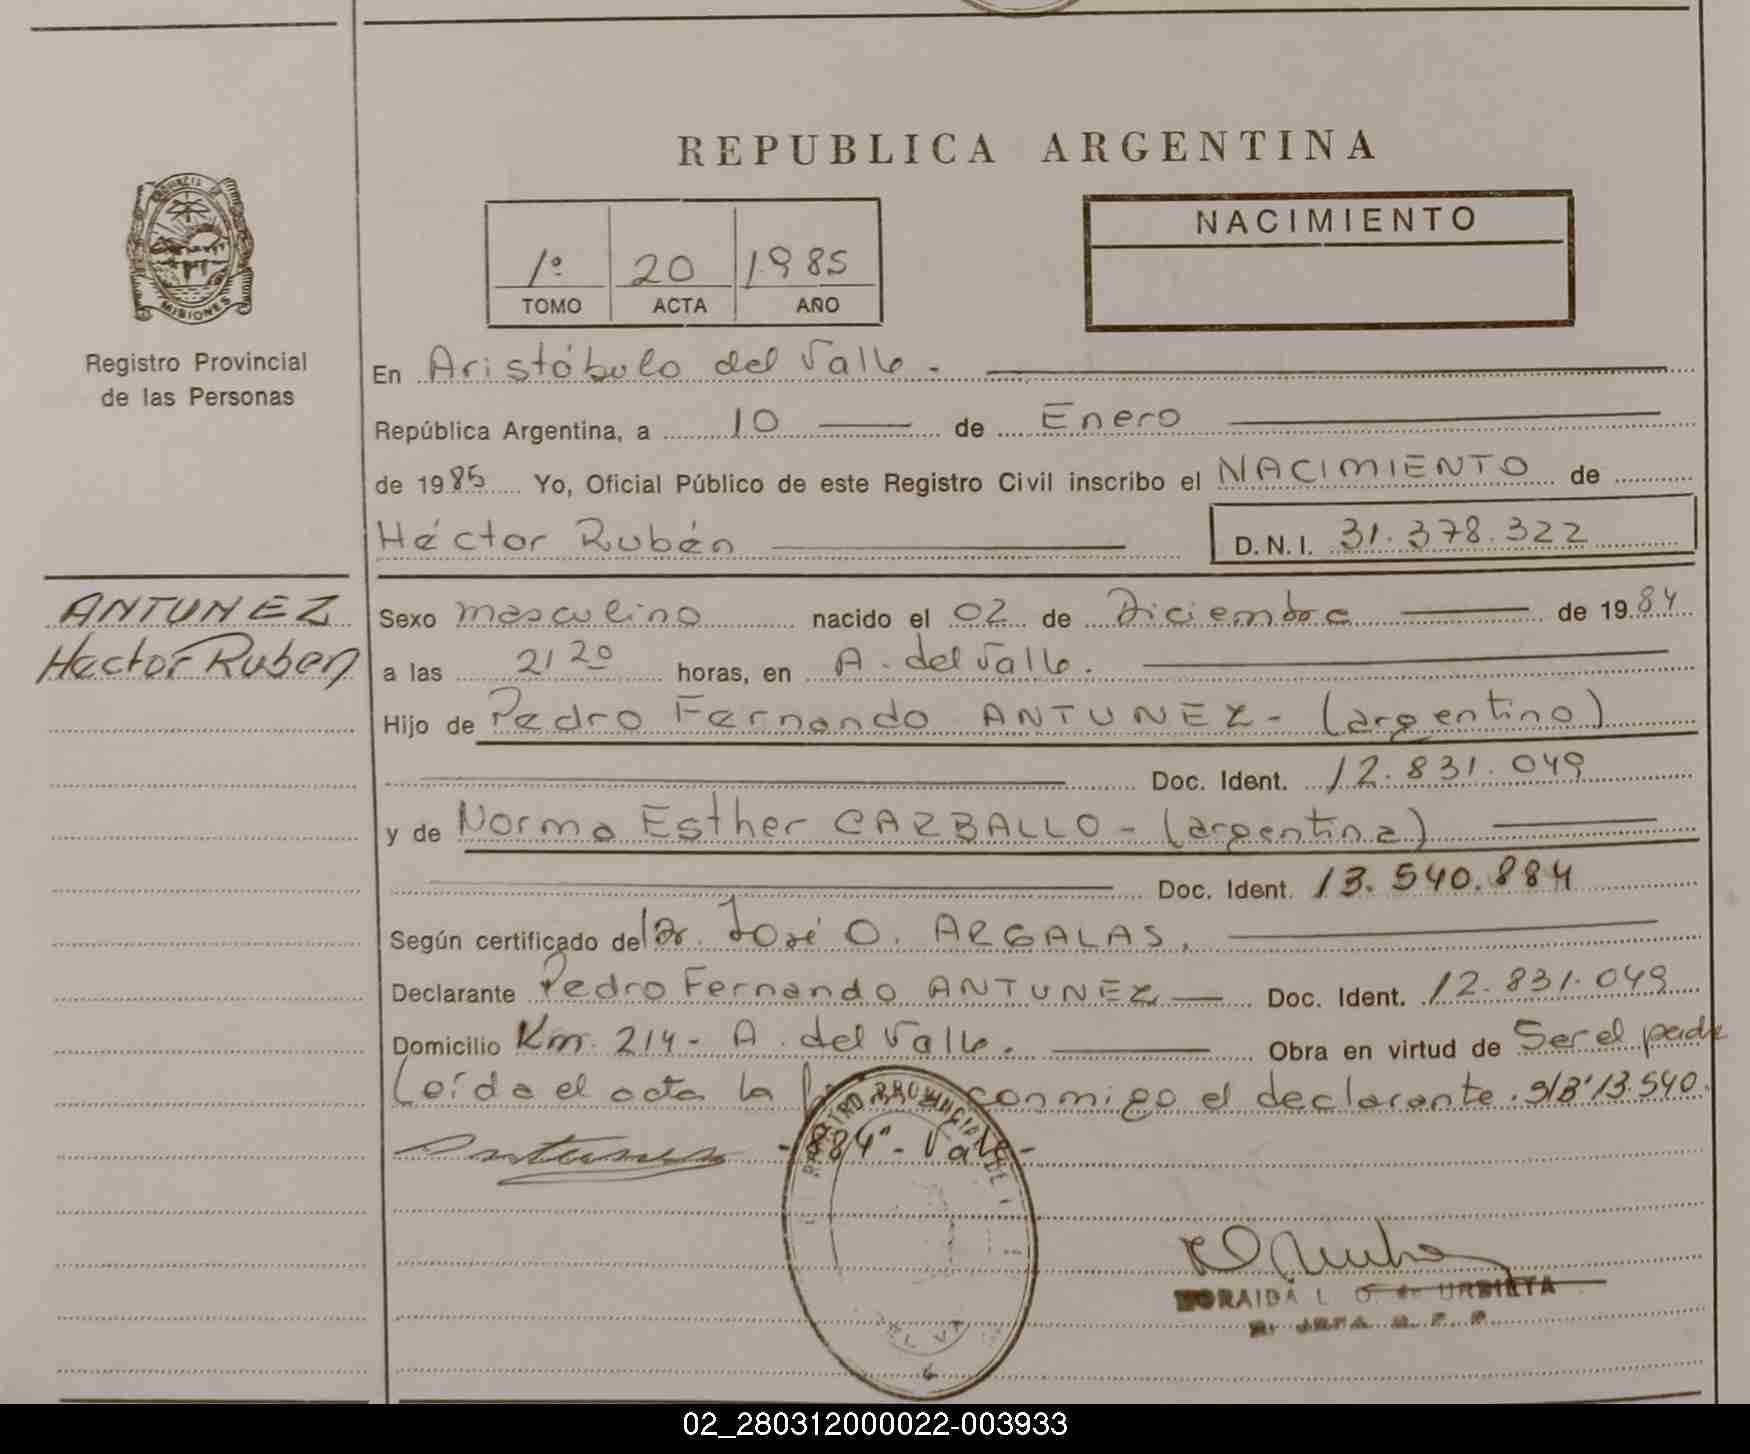 REPUBLICA ARGENTINA
PROVINCIA DE
MISIONES
Registro Provincial
de las Personas
1º 20 1985
TOMO ACTA AÑO
NACIMIENTO
En Aristóbulo del Valle.
República Argentina, a 10 de Enero
de 1985 Yo, Oficial Público de este Registro Civil inscribo el NACIMIENTO de
Héctor Rubén D.N.I. 31.378.322
ANTUNEZ
Hector Ruben
Sexo masculino nacido el 02 de Diciembre de 1984
a las 21 20 horas, en A. del Valle.
Hijo de Pedro Fernando ANTUNEZ - (argentino)
Doc. Ident. 12.831.049
y de Norma Esther CARBALLO - (argentina)
Doc. Ident. 13.540.884
Según certificado del Dr. José O. ARGALAS.
Declarante Pedro Fernando ANTUNEZ Doc. Ident. 12.831.049
Domicilio Km. 214 - A. del Valle. Obra en virtud de Ser el padre
Leída el acta la conmigo el declarante. S/B"13.540.
-884" - Vale-
Antunez
REGISTRO PROVINCIAL DE
6
ZORAIDA L. O. de URBIETA
02_280312000022-003933